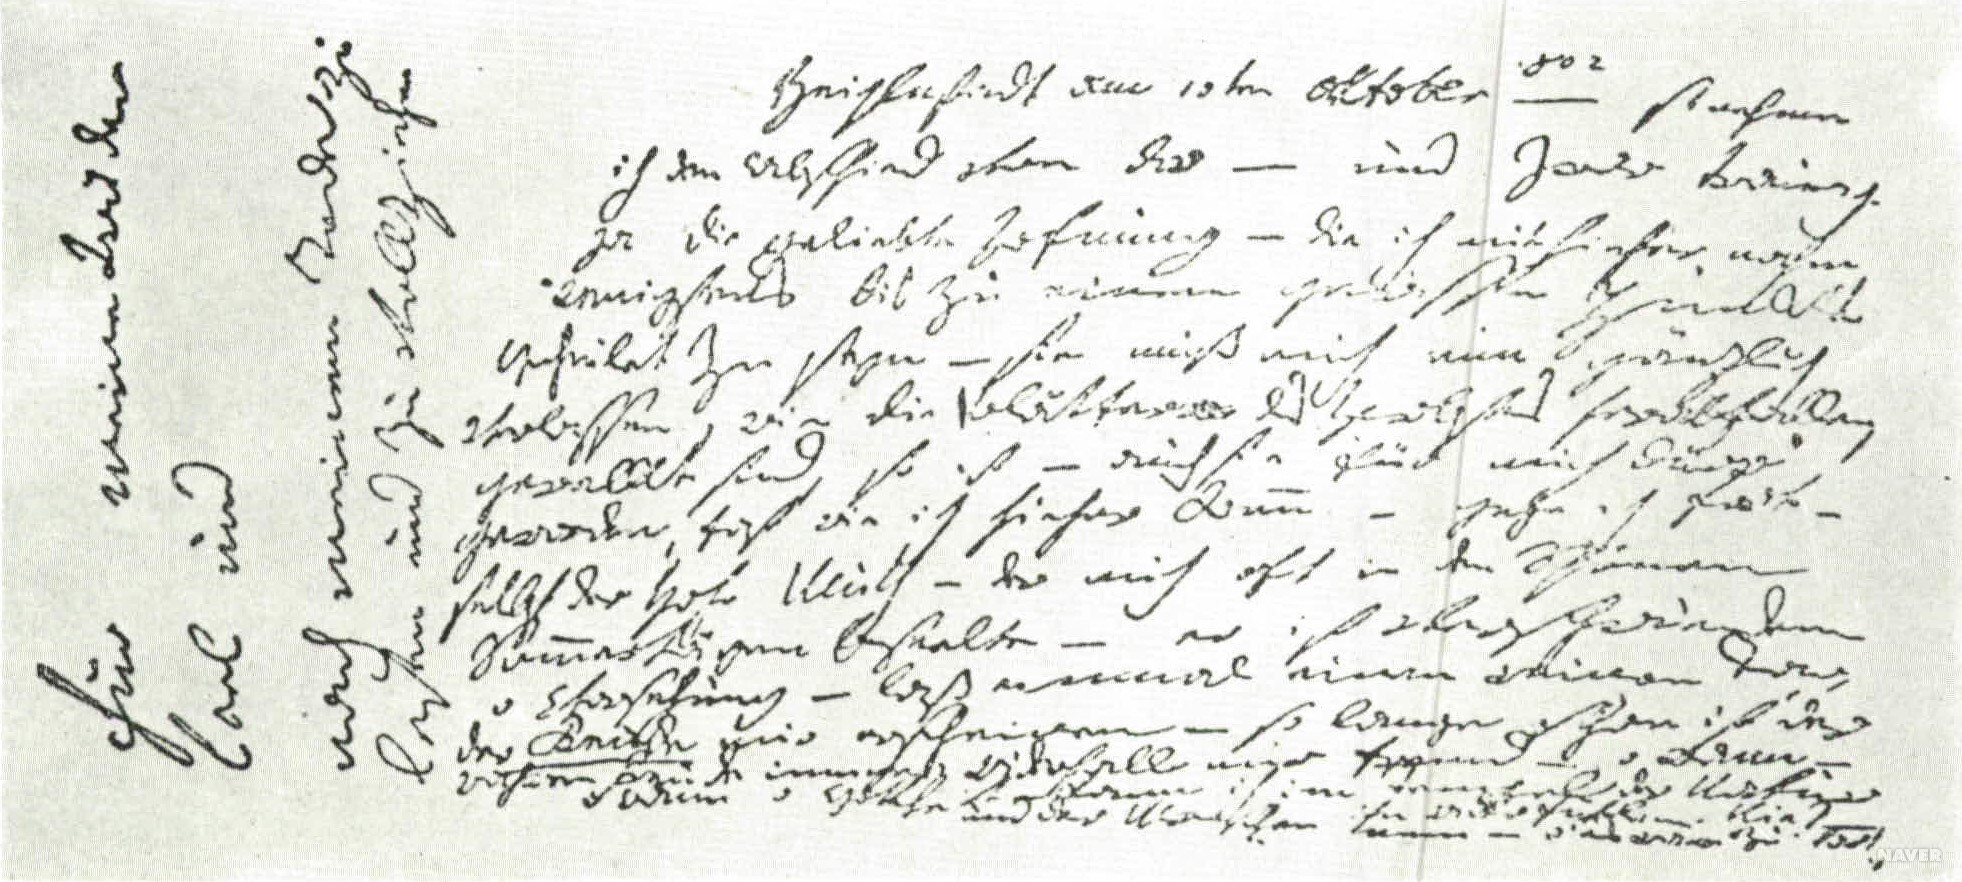 für meine Brüder
Carl und
nach meinem Tode zu
lesen und zu vollziehen
Heiglnstadt am 10ten Oktober 1802 — so nehme
ich den Abschied von dir — und zwar traurig —
ja die geliebte Hofnung — die ich mit hieher nahm
wenigstens bis zu einem gewissen Punkte
geheilet zu seyn — sie muß mich nun gänzlich
verlassen, wie die blätter des Herbstes herabfallen,
gewelkt sind, so ist — auch sie für mich dürr
geworden, fast wie ich hieher kamm — gehe ich fort —
selbst der Hohe Muth — der mich oft in den Schönen
Sommertägen beseelte — er ist verschwunden
o Vorsehung — laß einmal einen reinen Tag
der Freude mir erscheinen — so lange schon ist der
wahren Freude inniger widerhall mir fremd — o wann —
o wann o Gottheit kann ich im tempel der Natur
und der Menschen ihn wider fühlen — Nie? —
nein — o es wäre zu hart
NAVER